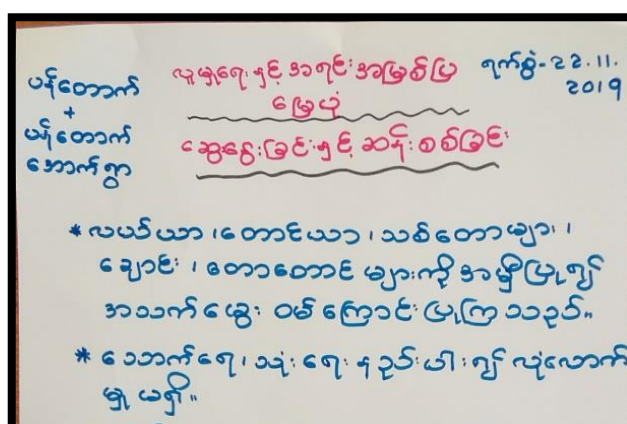 ပန်တောက်
+
ပန်တောက်
အောက်ရွာ
လူမှုရေးနှင့် အရင်းအမြစ်ပြ
မြေပုံ
ဆွေးနွေးခြင်းနှင့် ဆန်းစစ်ခြင်း
ရက်စွဲ-၂၂.11.
2019
* လယ်ယာ၊ တောင်ယာ၊ သစ်တောများ၊
ချောင်း၊ တောတောင် များကို အမှီပြု၍
အသက်မွေး ဝမ်းကြောင်း ပြုကြသည်။
* သောက်ရေ၊ သုံးရေ နည်းပါး၍ လုံလောက်
မှု မရှိ။